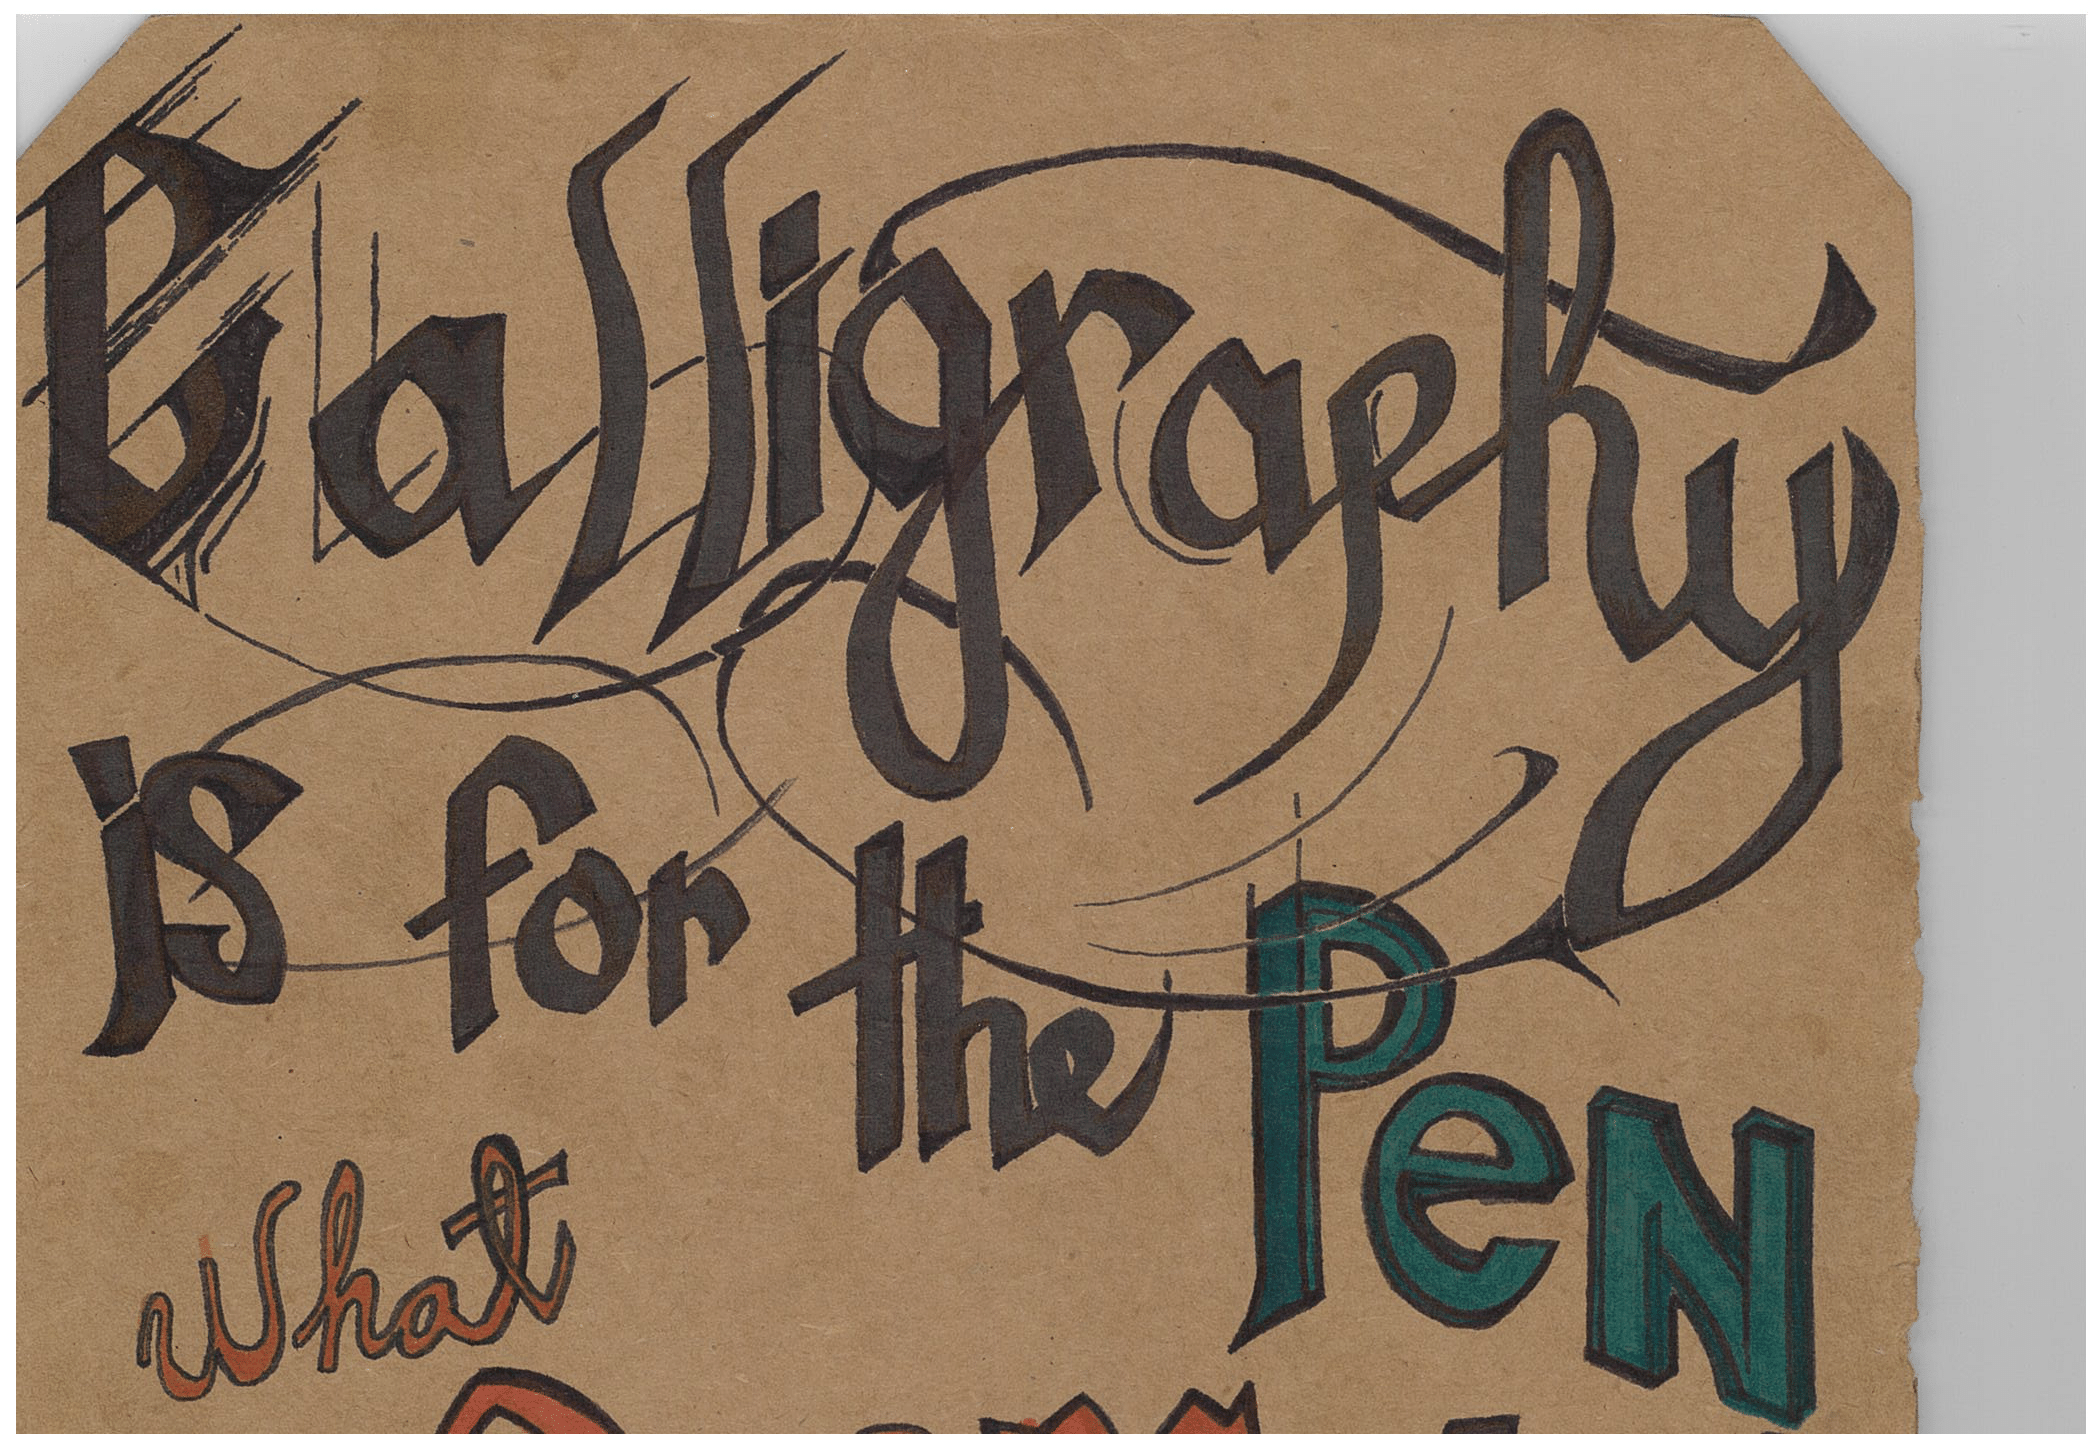 Calligraphy
is for the PeN
what